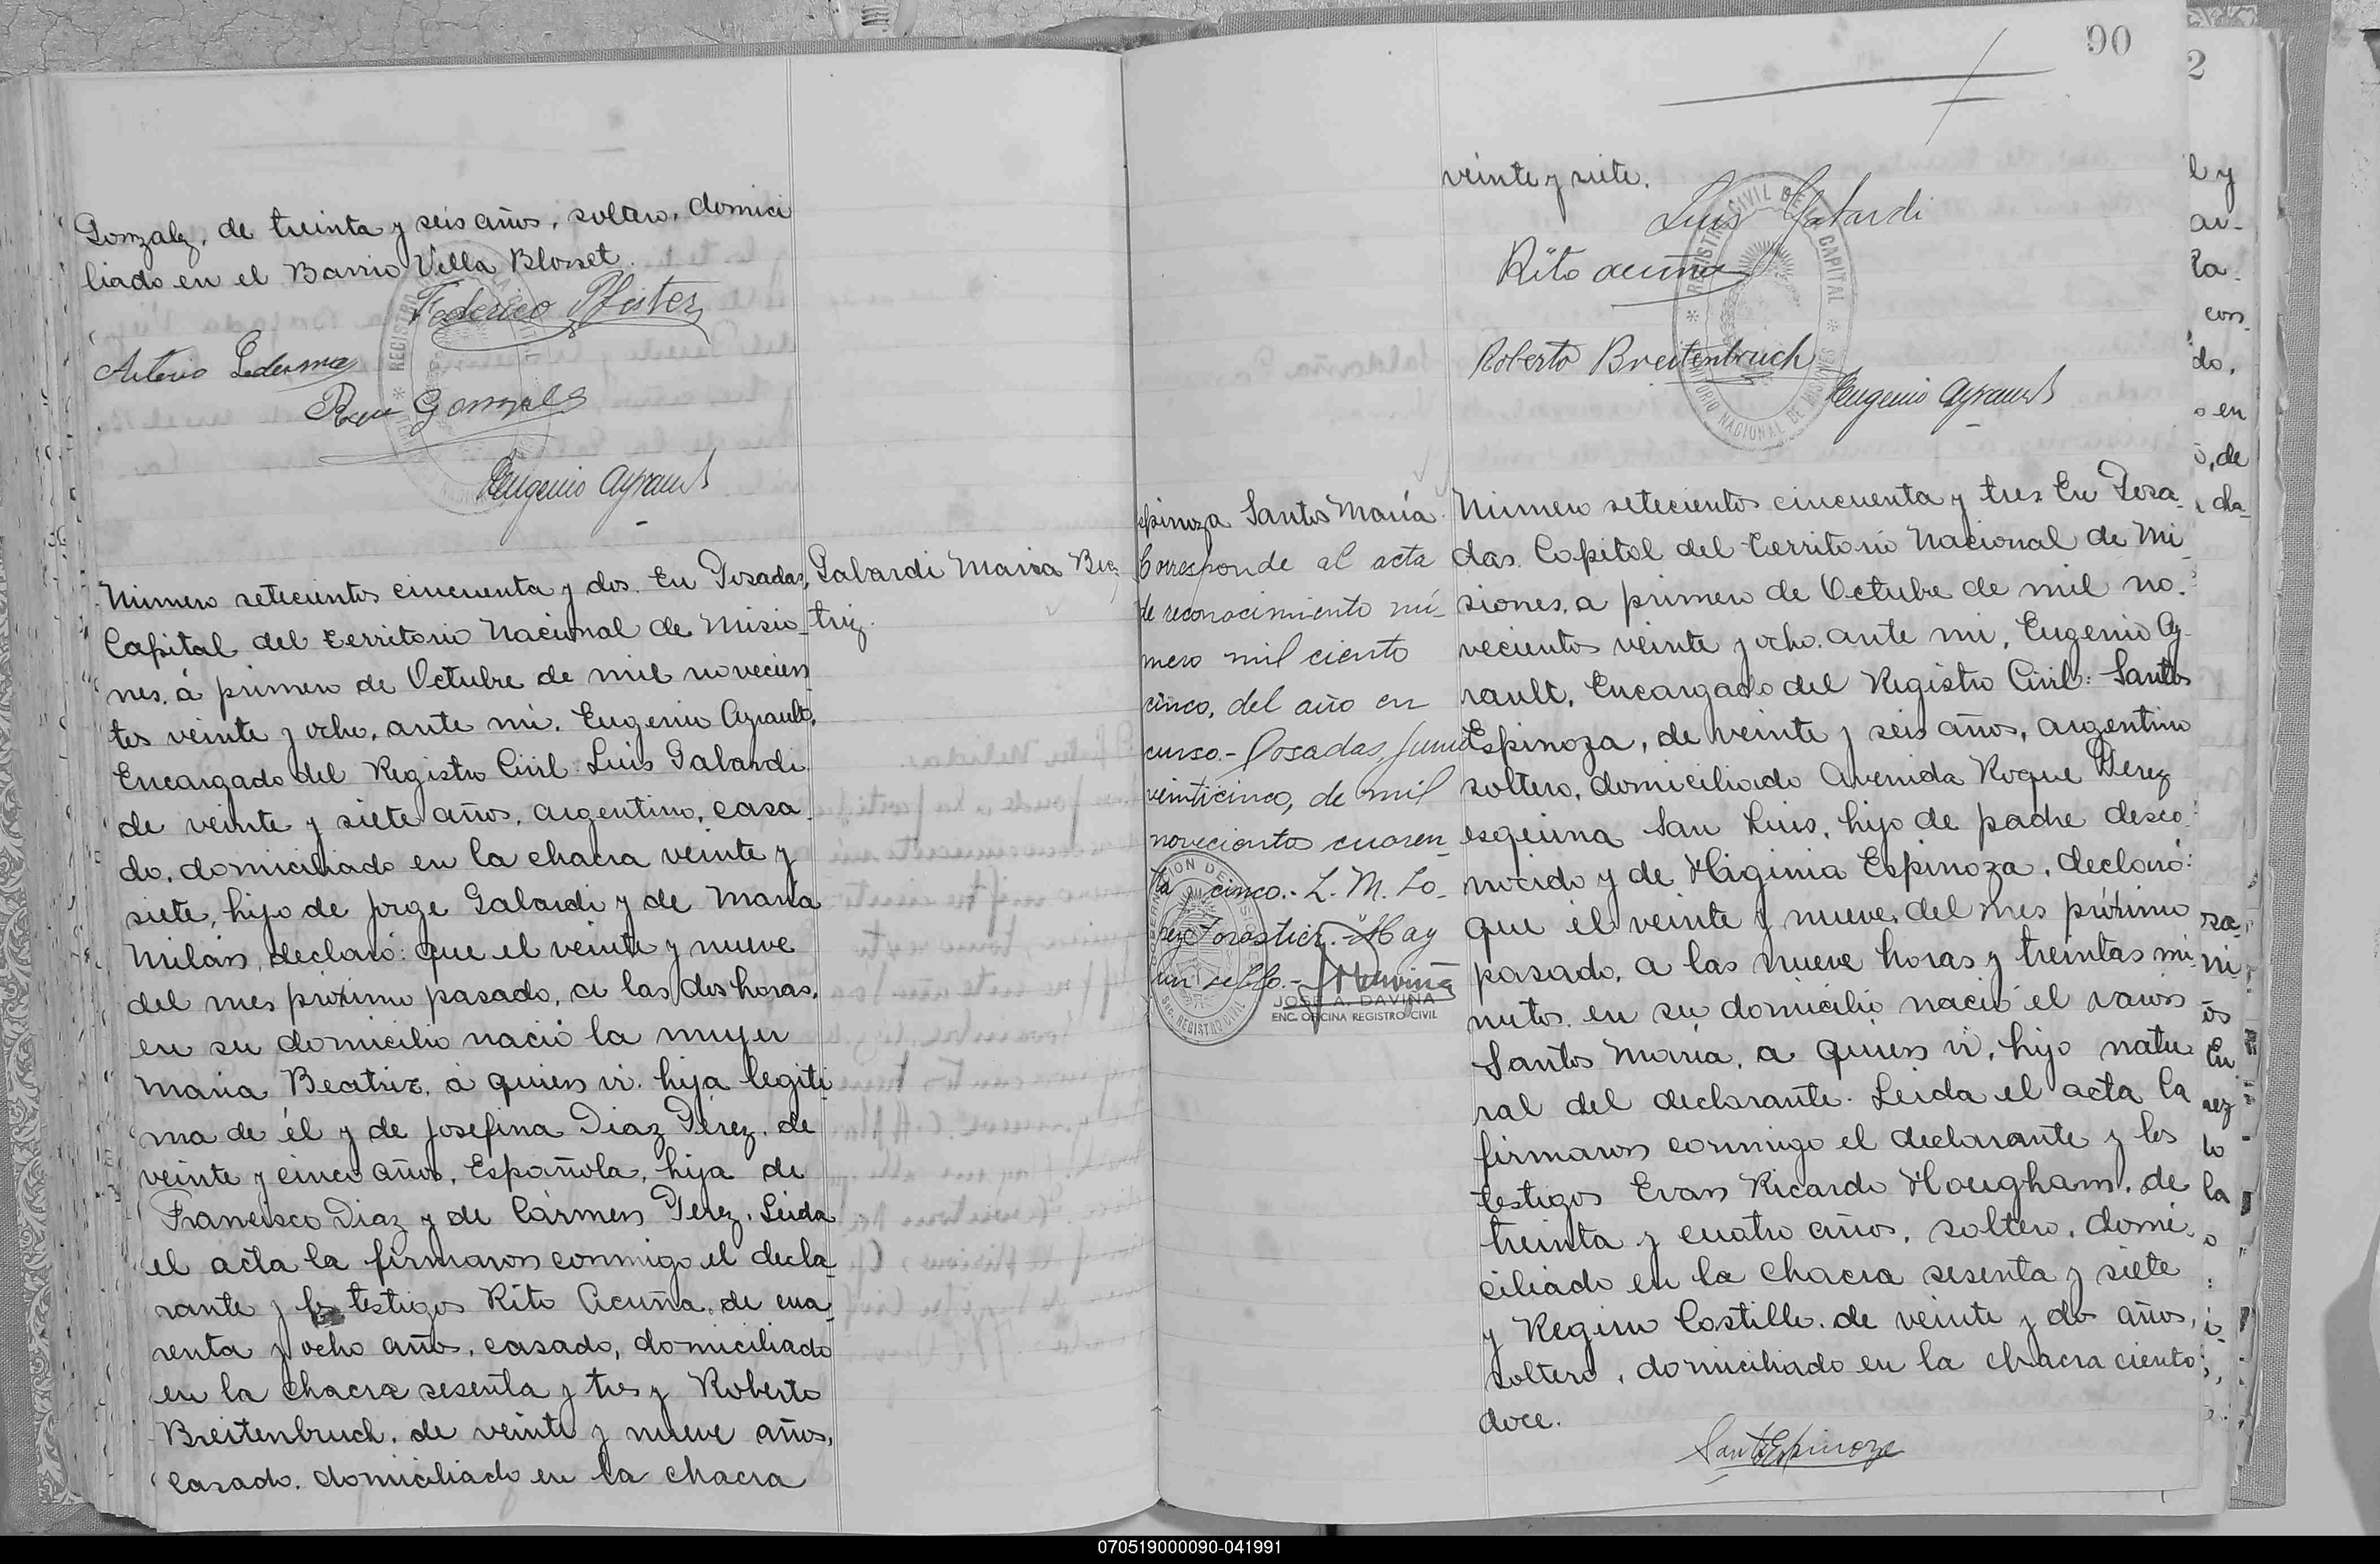 Gonzalez, de treinta y seis años, soltero, domici
liado en el Barrio Villa Blosset.
Federico Pfister
Arterio Ledesma
Gonzales
Eugenio Ayrault
Número setecientos cincuenta y dos. En Posadas,
Capital del territorio Nacional de Misio-
nes, á primero de Octubre de mil novecien
tos veinte y ocho, ante mi, Eugenio Ayrault,
Encargado del Registro Civil: Luis Galardi
de veinte y siete años, argentino, casa
do, domiciliado en la chacra veinte y
siete, hijo de Jorge Galardi y de María
Milán, declaró: que el veinte y nueve
del mes próximo pasado, a las dos horas,
en su domicilio nació la mujer
María Beatriz, á quien vi, hija legíti
ma de él y de Josefina Diaz Pérez, de
veinte y cinco años, Española, hija de
Francisco Diaz y de Cármen Perez. Leida
el acta la firmaron conmigo el decla
rante y los testigos Rito Acuña, de cua
renta y ocho años, casado, domiciliado
en la chacra sesenta y tres y Roberto
Breitenbruch, de veinte y nueve años,
casado, domiciliado en la chacra
Galardi Maria Bea
triz.
90
2
veinte y siete.
Luis Galardi
Rito acuña
Roberto Breitenbruch
Eugenio Ayrault
REGISTRO CIVIL DE LA CAPITAL
TERRITORIO NACIONAL DE MISIONES
Espinoza Santos María.
Corresponde al acta
de reconocimiento nú-
mero mil ciento
cinco, del año en
curso.- Posadas, Junio
veinticinco, de mil
novecientos cuaren-
ta y cinco.- L. M. Lo-
pez Forastier.- Hay
un sello.-
JOSE A. DAVIÑA
ENC. OFICINA REGISTRO CIVIL
Número setecientos cincuenta y tres. En Posa-
das, Capital del territorio Nacional de Mi
siones, a primero de Octubre de mil no-
vecientos veinte y ocho, ante mi, Eugenio Ay-
rault, Encargado del Registro Civil: Santos
Espinoza, de veinte y seis años, argentino
soltero, domiciliado Avenida Roque Perez
esquina San Luis, hijo de padre desco-
nocido y de Higinia Espinoza, declaró:
que el veinte y nueve, del mes próximo
pasado, a las nueve horas y treintas mi-
nutos, en su domicilio nació el varon
Santos María, a quien vi, hijo natu
ral del declarante. Leida el acta la
firmaron conmigo el declarante y los
testigos Evan Ricardo Hougham, de
treinta y cuatro años, soltero, domi-
ciliado en la chacra sesenta y siete
y Regino Costillo, de veinte y dos años,
soltero, domiciliado en la chacra ciento
doce.
Santos Espinoza
070519000090-041991